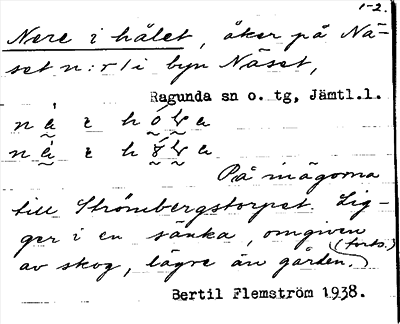 1-2.
Nere i hålet, åker på Nä-
set n:r 1 i byn Näset,
Ragunda sn o. tg, Jämtl.l.
På inägorna
till Strömbergstorpet. Lig-
ger i en sänka, omgiven
av skog, lägre än gården. (forts.)
Bertil Flemström 1938.